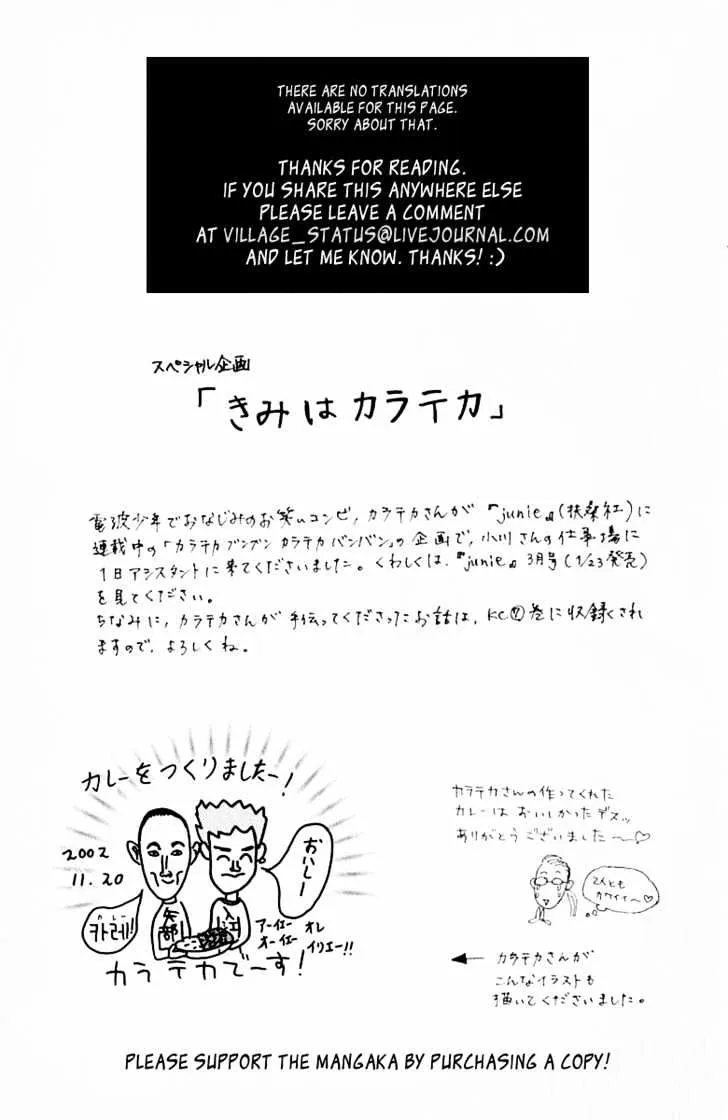 THERE ARE NO TRANSLATIONS
AVAILABLE FOR THIS PAGE.
SORRY ABOUT THAT.
THANKS FOR READING.
IF YOU SHARE THIS ANYWHERE ELSE
PLEASE LEAVE A COMMENT
AT VILLAGE_STATUS@LIVEJOURNAL.COM
AND LET ME KNOW. THANKS! :)
スペシャル企画
「きみはカラテカ」
電波少年でおなじみのお笑いコンビ,カラテカさんが『junie』(扶桑社)に
連載中の「カラテカブンブン カラテカバンバン」の企画で,小川さんの仕事場に
1日アシスタントに来てくださいました。くわしくは.『junie』3月号(1/23発売)
を見てください。
ちなみに,カラテカさんが手伝ってくださったお話は,KC巻に収録くされ
ますので,よろしくね。
カレーをつくりましたー!
2002
11.20
おいしー
カレー
카레!
矢部
入江
アーイエー オレ
オーイエー イリエー!!
カラテカでーす!
カラテカさんの作ってくれた
カレーは おいしかったデスッ
ありがとうございました〜♡
2人とも
カワイイ〜♡
カラテカさんが
こんなイラストも
描いてくださいました。
PLEASE SUPPORT THE MANGAKA BY PURCHASING A COPY!